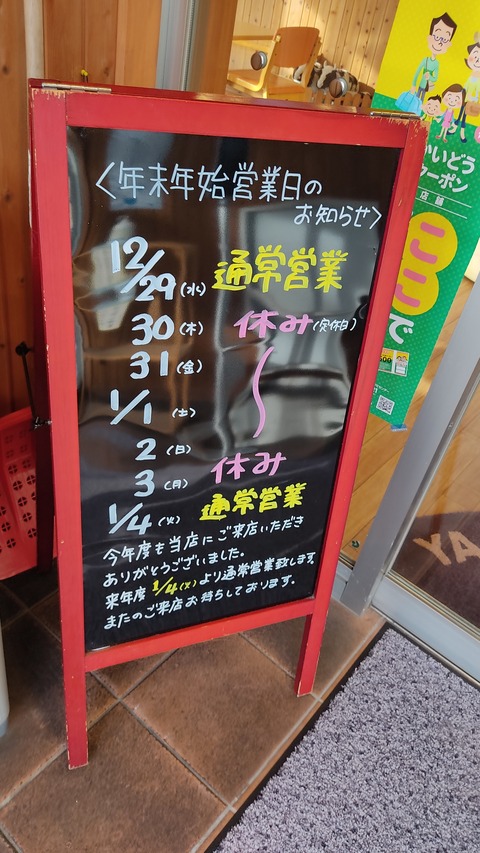 〈年末年始営業日の
お知らせ〉
12/29(水) 通常営業
30(木) 休み(定休日)
31(金)
1/1(土)
2(日)
3(月) 休み
1/4(火) 通常営業
今年度も当店にご来店いただき
ありがとうございました。
来年度 1/4(火)より通常営業致します。
またのご来店お待ちしております。
かいどう
クーポン
店舗
ここ
で
YA